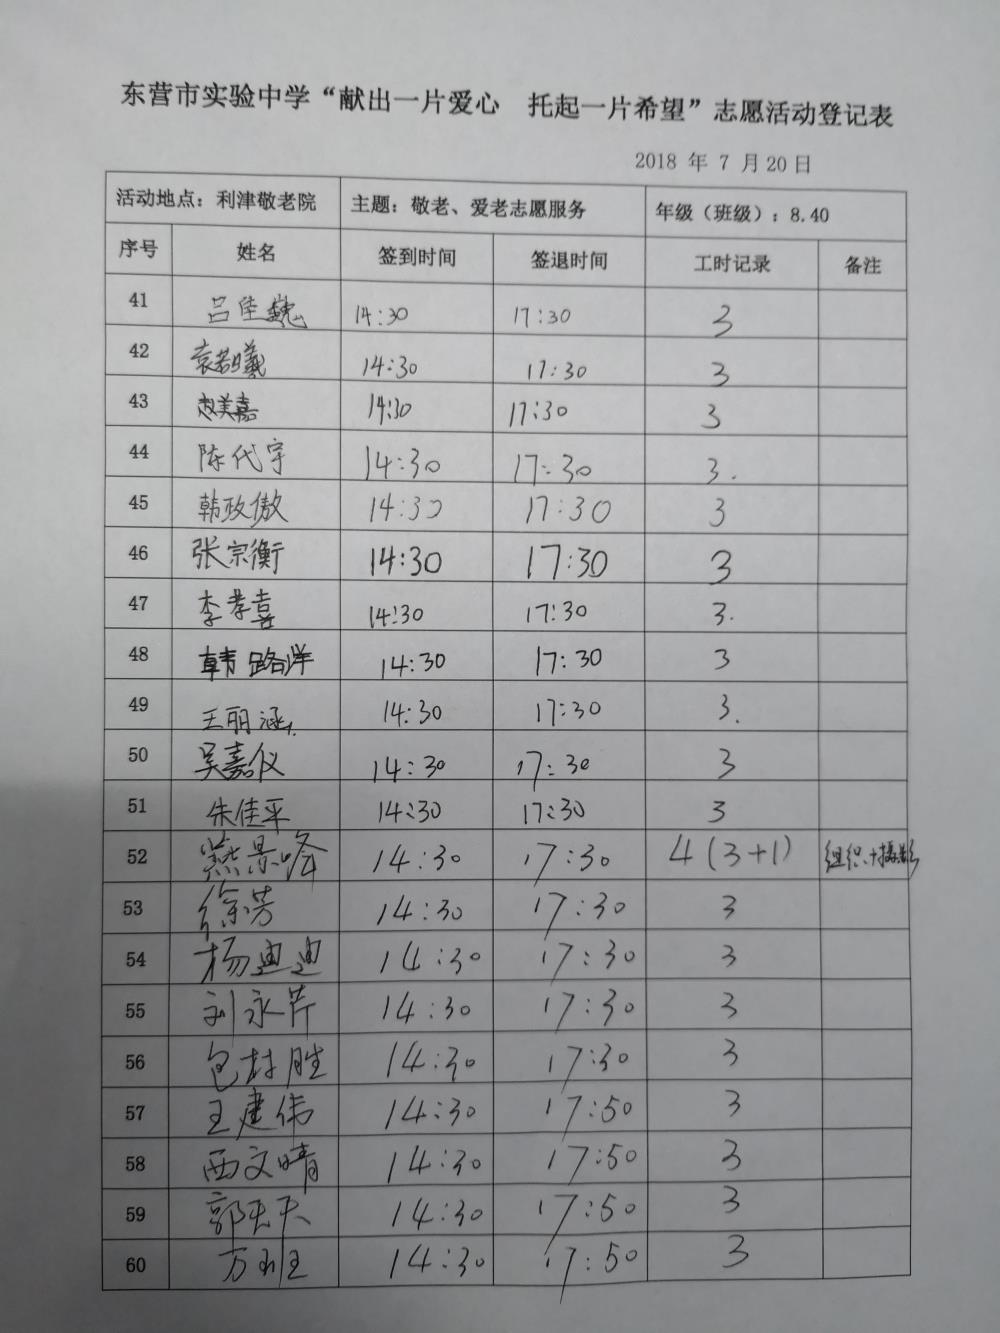 东营市实验中学“献出一片爱心　托起一片希望”志愿活动登记表
2018 年 7 月 20 日
活动地点：利津敬老院 主题：敬老、爱老志愿服务 年级（班级）：8.40
序号 姓名 签到时间 签退时间 工时记录 备注
41 吕佳巍 14:30 17:30 3
42 袁若曦 14:30 17:30 3
43 赵美嘉 14:30 17:30 3
44 陈代宇 14:30 17:30 3.
45 韩政傲 14:30 17:30 3
46 张宗衡 14:30 17:30 3
47 李孝喜 14:30 17:30 3.
48 韩路洋 14:30 17:30 3
49 王丽涵 14:30 17:30 3.
50 吴嘉仪 14:30 17:30 3
51 朱佳平 14:30 17:30 3
52 14:30 17:30 4(3+1) 组织+摄影
53 徐芳 14:30 17:30 3
54 杨迪迪 14:30 17:30 3
55 刘永芹 14:30 17:30 3
56 包封胜 14:30 17:30 3
57 王建伟 14:30 17:50 3
58 西文晴 14:30 17:50 3
59 郭天天 14:30 17:50 3
60 14:30 17:50 3